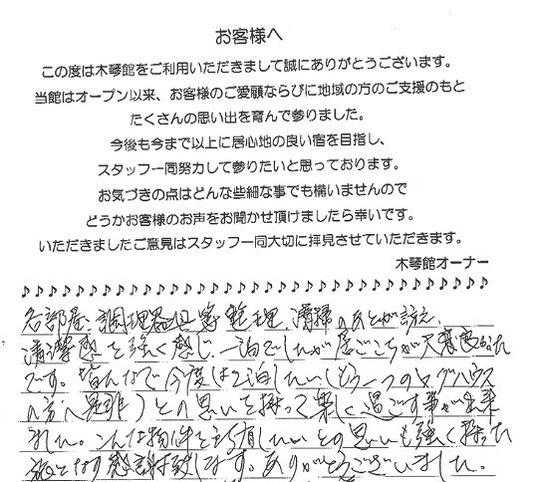 お客様へ
この度は木琴館をご利用いただきまして誠にありがとうございます。
当館はオープン以来、お客様のご愛顧ならびに地域の方のご支援のもと
たくさんの思い出を育んで参りました。
今後も今まで以上に居心地の良い宿を目指し、
スタッフ一同努力して参りたいと思っております。
お気づきの点はどんな些細な事でも構いませんので
どうかお客様のお声をお聞かせ頂けましたら幸いです。
いただきましたご意見はスタッフ一同大切に拝見させていただきます。
木琴館オーナー
♪♪♪♪♪♪♪♪♪♪♪♪♪♪♪♪♪♪♪♪♪♪♪♪♪♪♪♪♪♪♪♪♪♪♪♪
各部屋、調理器具等整理、清掃のあとが
清潔感を強く感じ、一泊でしたが居ごこちが大変良かった
です。皆んなで今度は2泊したい、(もう一つのログハウス
の方へ是非)との思いを持って楽しく過ごす事が出来
ました。こんな物件を所有したいとの思いも強く持った
旅となり感謝致します。ありがとうございました。